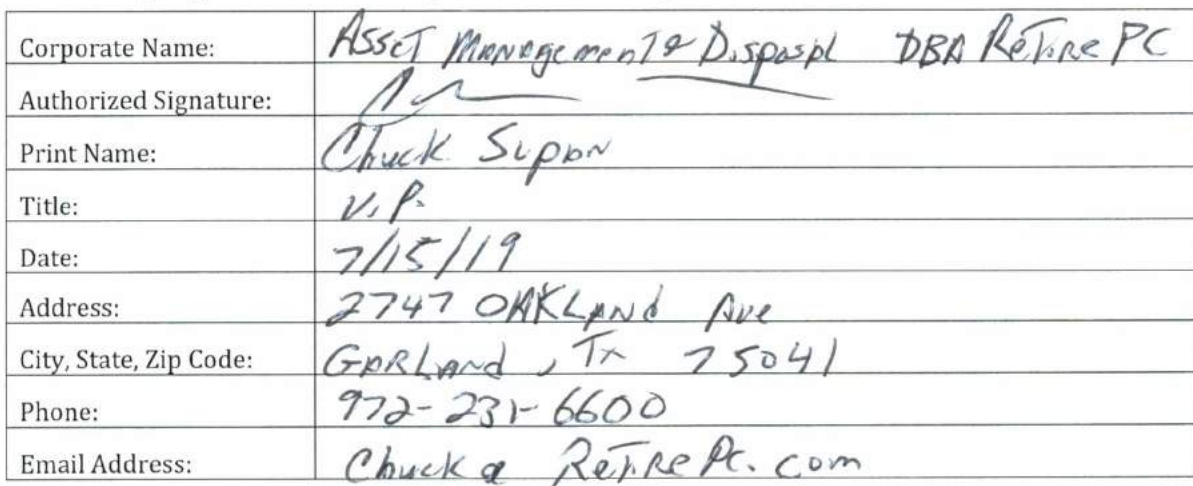 Corporate Name: Asset Management & Disposal DBA Retire PC
Authorized Signature:
Print Name: Chuck Supon
Title: V.P.
Date: 7/15/19
Address: 2747 OAKLand Ave
City, State, Zip Code: GARLand, Tx 75041
Phone: 972-231-6600
Email Address: Chuck@RetirePC.com